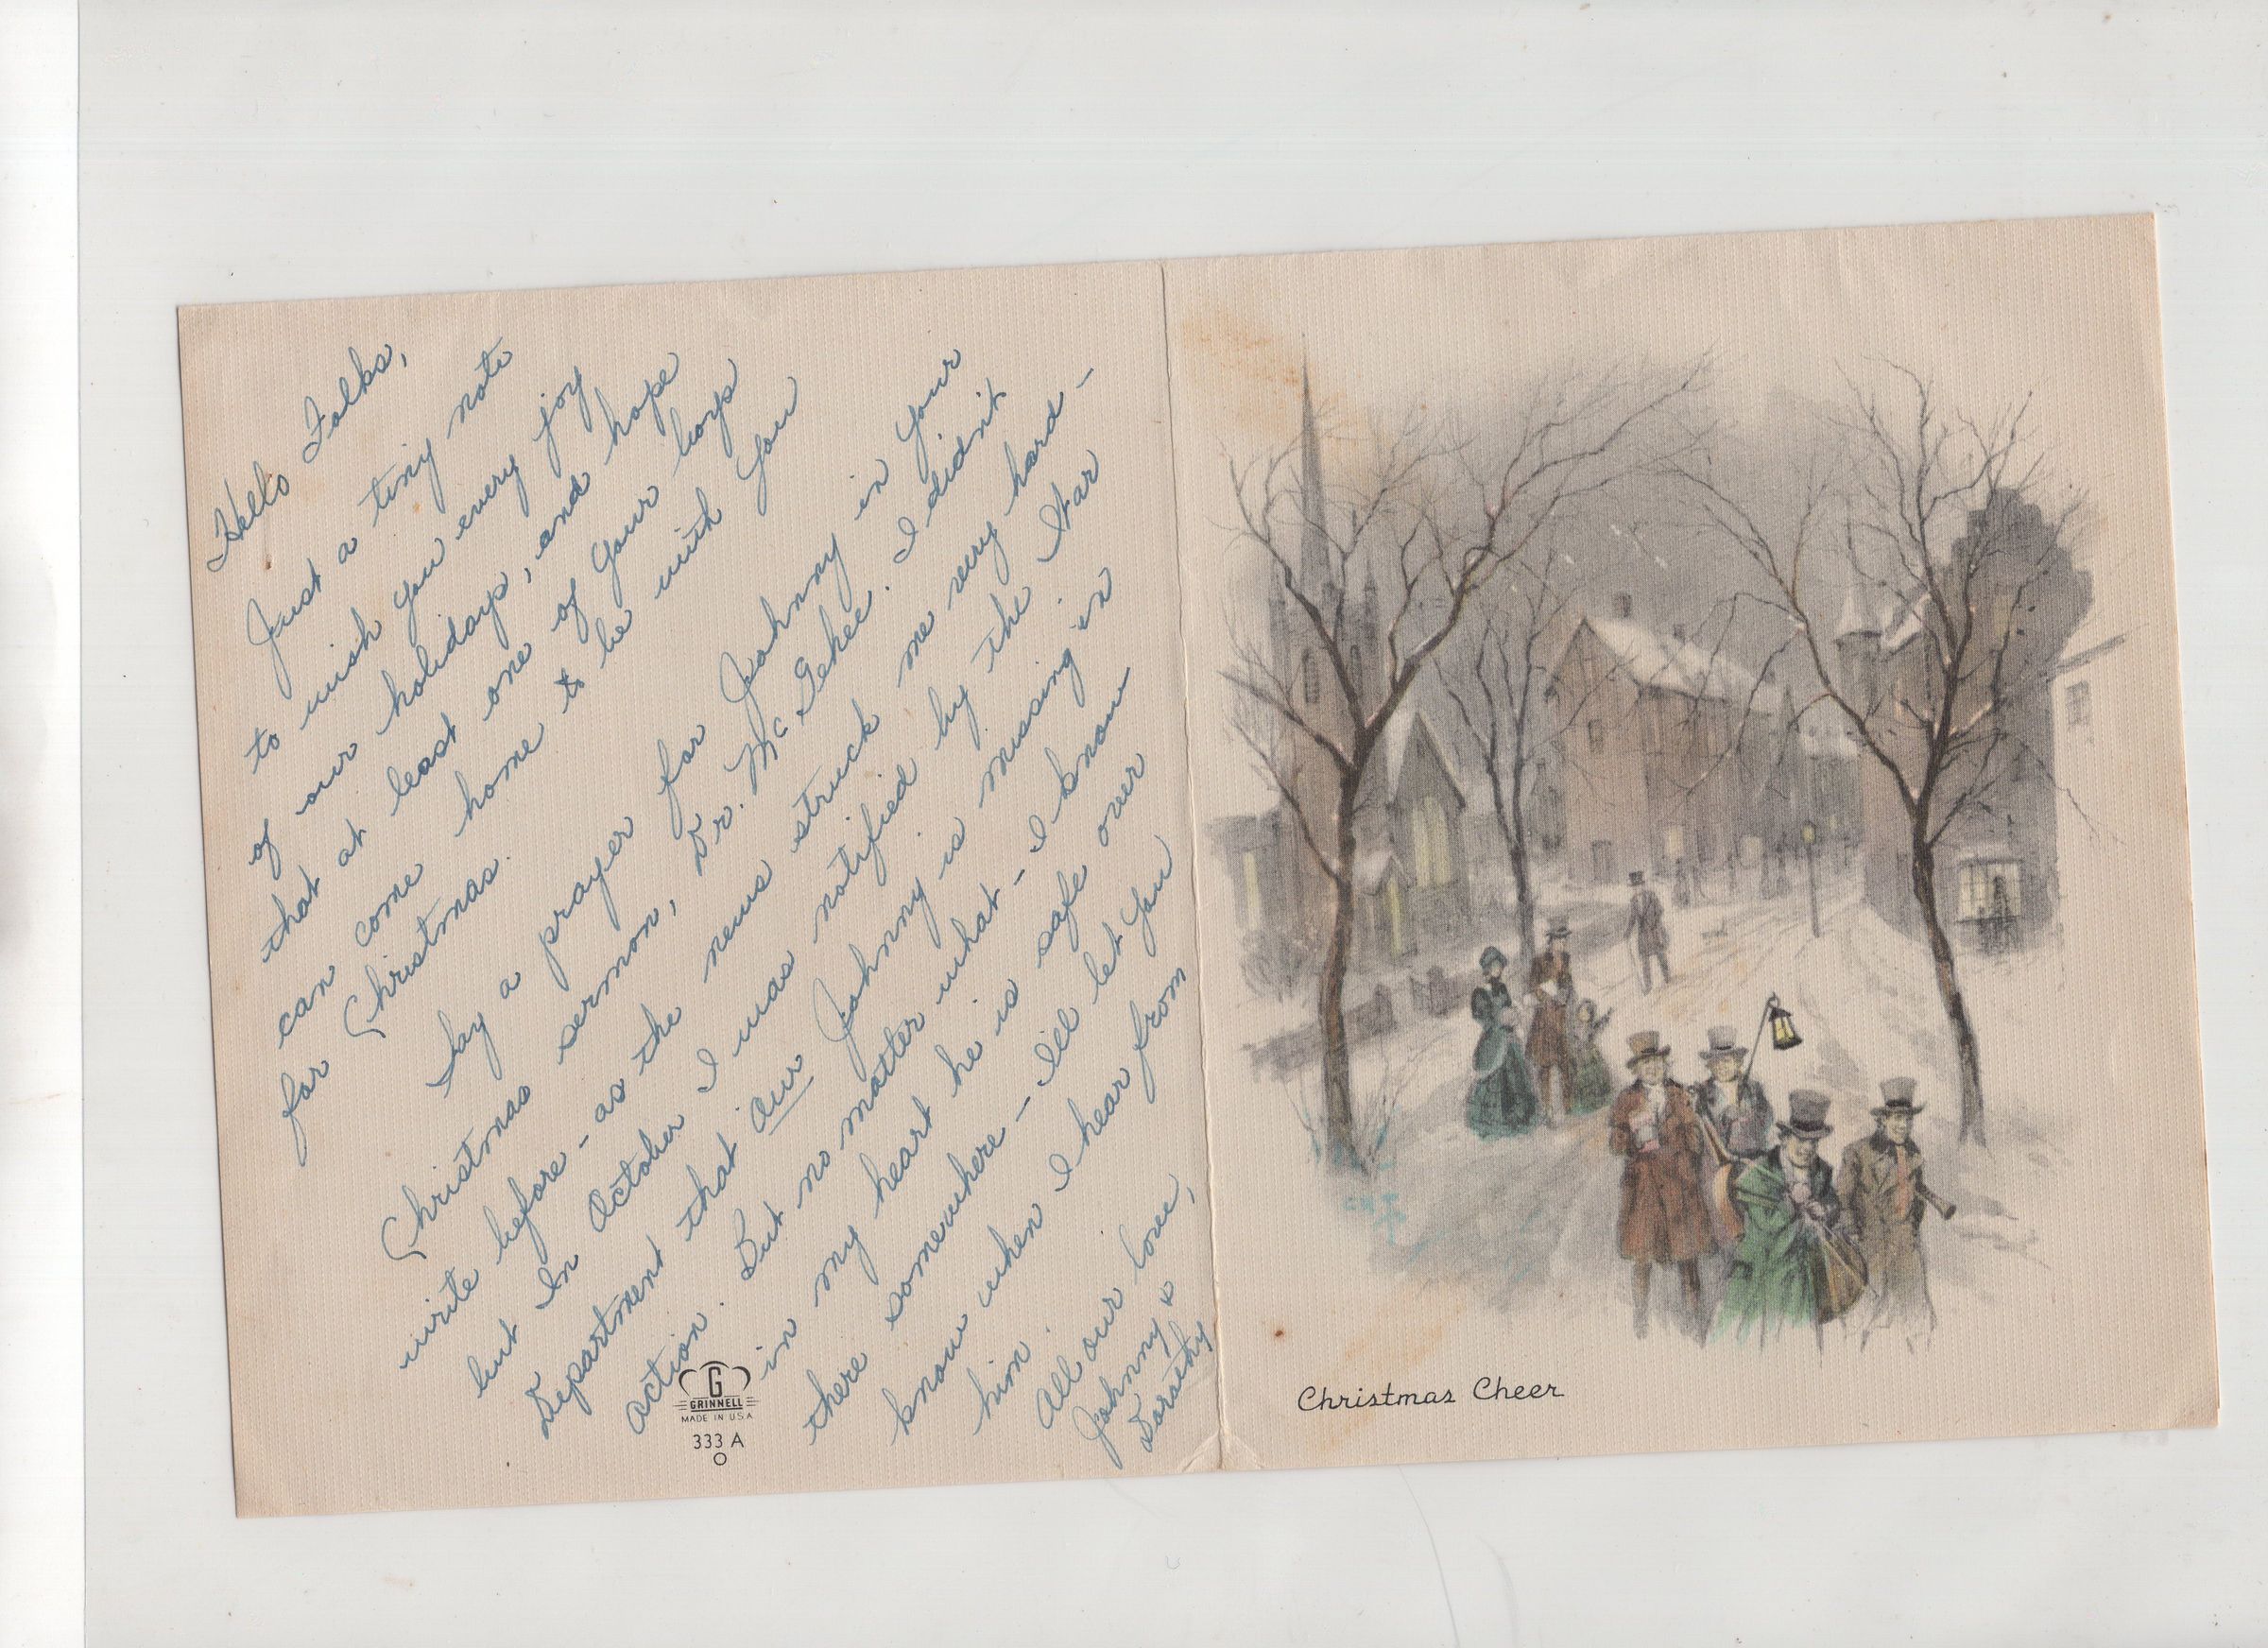 Hello Folks,
Just a tiny note
to wish you every joy
of our holidays, and hope
that at least one of your boys
can come home to be with you
for Christmas.
Say a prayer for Johnny in your
Christmas sermon, Dr. McGehee. I didn't
write before - as the news struck me very hard -
but in October I was notified by the War
Department that our Johnny is missing in
action. But no matter what - I know
in my heart he is safe over
there somewhere - I'll let you
know when I hear from
him.
All our love,
Johnny &
Dorothy
G
GRINNELL
MADE IN U.S.A.
333 A
O
Christmas Cheer